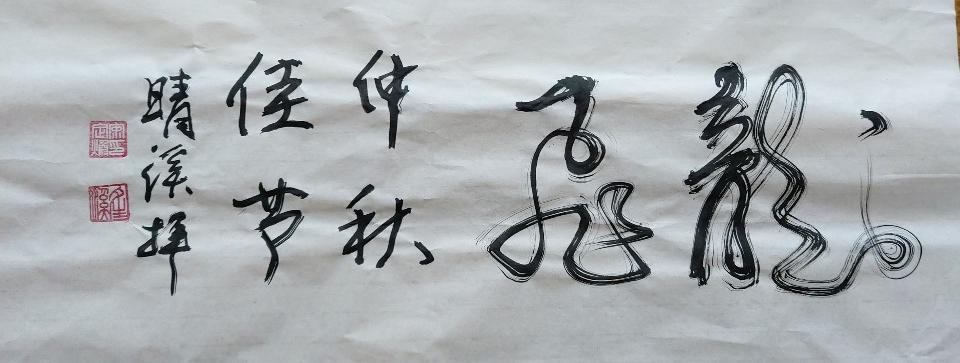 龍飛
仲秋
佳节
晴溪拜